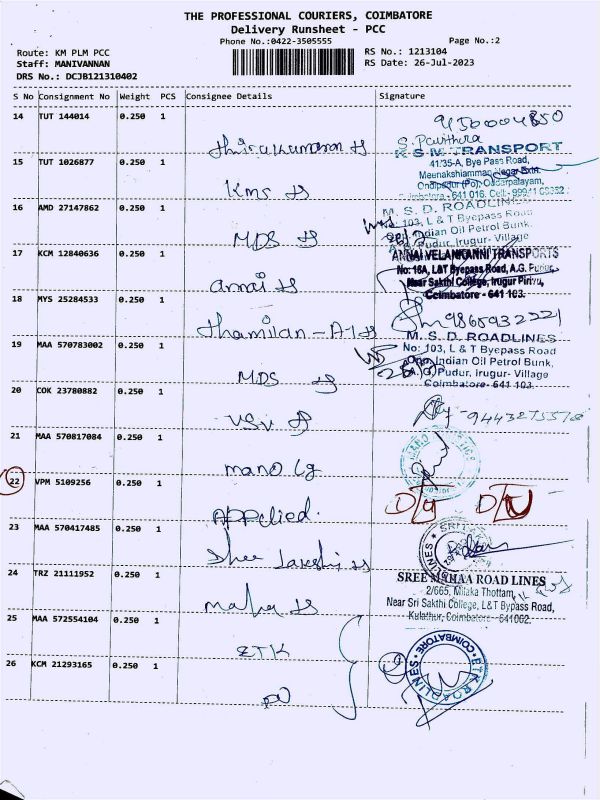 THE PROFESSIONAL COURIERS, COIMBATORE
Delivery Runsheet - PCC
Phone No.:0422-3505555 Page No.:2
Route: KM PLM PCC RS No.: 1213104
Staff: MANIVANNAN RS Date: 26-Jul-2023
DRS No.: DCJB121310402
S No Consignment No Weight PCS Consignee Details Signature
14 TUT 144014 0.250 1
S. Pavithra
K S M TRANSPORT
41/35-A, Bye Pass Road,
15 TUT 1026877 0.250 1
Meenakshiamman Nagar Extn.
Kms
16 AMD 27147862 0.250 1
M. S. D. ROADLINES
103, L & T Byepass Road
Indian Oil Petrol Bunk,
MDS
Pudur, Irugur- Village
17 KCM 12840636 0.250 1
ANNAI VELANKANNI TRANSPORTS
No: 16A, L&T Byepass Road, A.G. Pudur,
Near Sakthi College, Irugur Pirivu,
annai
Coimbatore - 641 103.
18 MYS 25284533 0.250 1
9865932221
thamilan - A1
M. S. D. ROADLINES
19 MAA 570783002 0.250 1
No: 103, L & T Byepass Road
Opp. Indian Oil Petrol Bunk,
A. G. Pudur, Irugur- Village
MDS
Coimbatore- 641 103.
20 COK 23780882 0.250 1
VSV
21 MAA 570817084 0.250 1
mano Lg
22 VPM 5109256 0.250 1
D/U D/U
APPclied.
23 MAA 570417485 0.250 1
SREE MAHAA ROAD LINES
24 TRZ 21111952 0.250 1
2/665, Milaka Thottam,
Near Sri Sakthi College, L&T Bypass Road,
maha
Kulathur, Coimbatore- 641062.
25 MAA 572554104 0.250 1
ETK
COIMBATORE
ETK ROADLINES
26 KCM 21293165 0.250 1